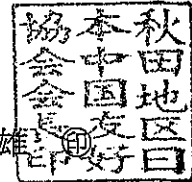 秋田地区日
本中国友好
協会会長印
雄㊞